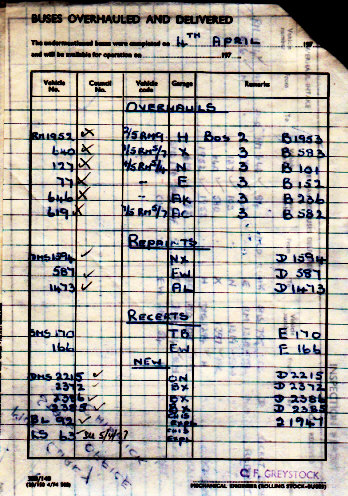 BUSES OVERHAULED AND DELIVERED
The undermentioned buses were completed on 4TH APRIL 197
and will be available for operation on 197
Vehicle No. Council No. Vehicle code Garage Remarks
OVERHAULS
RM1952 X 2/5RM9 H BOS 2 B1953
640 X X 3 B593
127 X N 3 B101
77 X - F 3 B152
646 X - AK 3 B236
619 X AC 3 B582
REPAINTS
DMS1594 ✓ NX D1594
587 ✓ EW D587
1473 ✓ AL D1473
RECERTS
SMS170 TB E170
166 EW E166
NEW
DMS2215 ✓ ON D2215
2372 ✓ BX D2372
2386 ✓ BX D2386
2385 ✓ BX D2385
BL 92 ✓ 21967
LS 63
C. F. GREYSTOCK
MECHANICAL ENGINEER (ROLLING STOCK—BUSES)